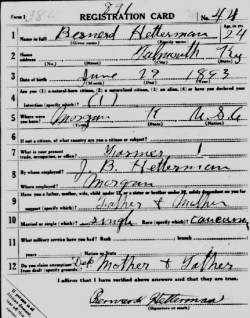 Form 1
REGISTRATION CARD
No. 44
1 Name in full Bernerd Hetterman Age, in yrs. 24
(Given name) (Family name)
2 Home address Falmouth Ky
(No.) (Street) (City) (State)
3 Date of birth June 29 1893
(Month) (Day) (Year)
4 Are you (1) a natural-born citizen, (2) a naturalized citizen, (3) an alien, (4) or have you declared your intention (specify which)? (1)
5 Where were you born? Morgan K U.S.A
(Town) (State) (Nation)
6 If not a citizen, of what country are you a citizen or subject?
7 What is your present trade, occupation, or office? Farmer 1
8 By whom employed? J B. Hetterman
Where employed? Morgan
9 Have you a father, mother, wife, child under 12, or a sister or brother under 12, solely dependent on you for support (specify which)? Father & Mother
10 Married or single (which)? single Race (specify which)? Caucasian
11 What military service have you had? Rank branch
years Nation or State
12 Do you claim exemption from draft (specify grounds)? Dep Mother & Father
I affirm that I have verified above answers and that they are true.
Bernard Hetterman
(Signature or mark)